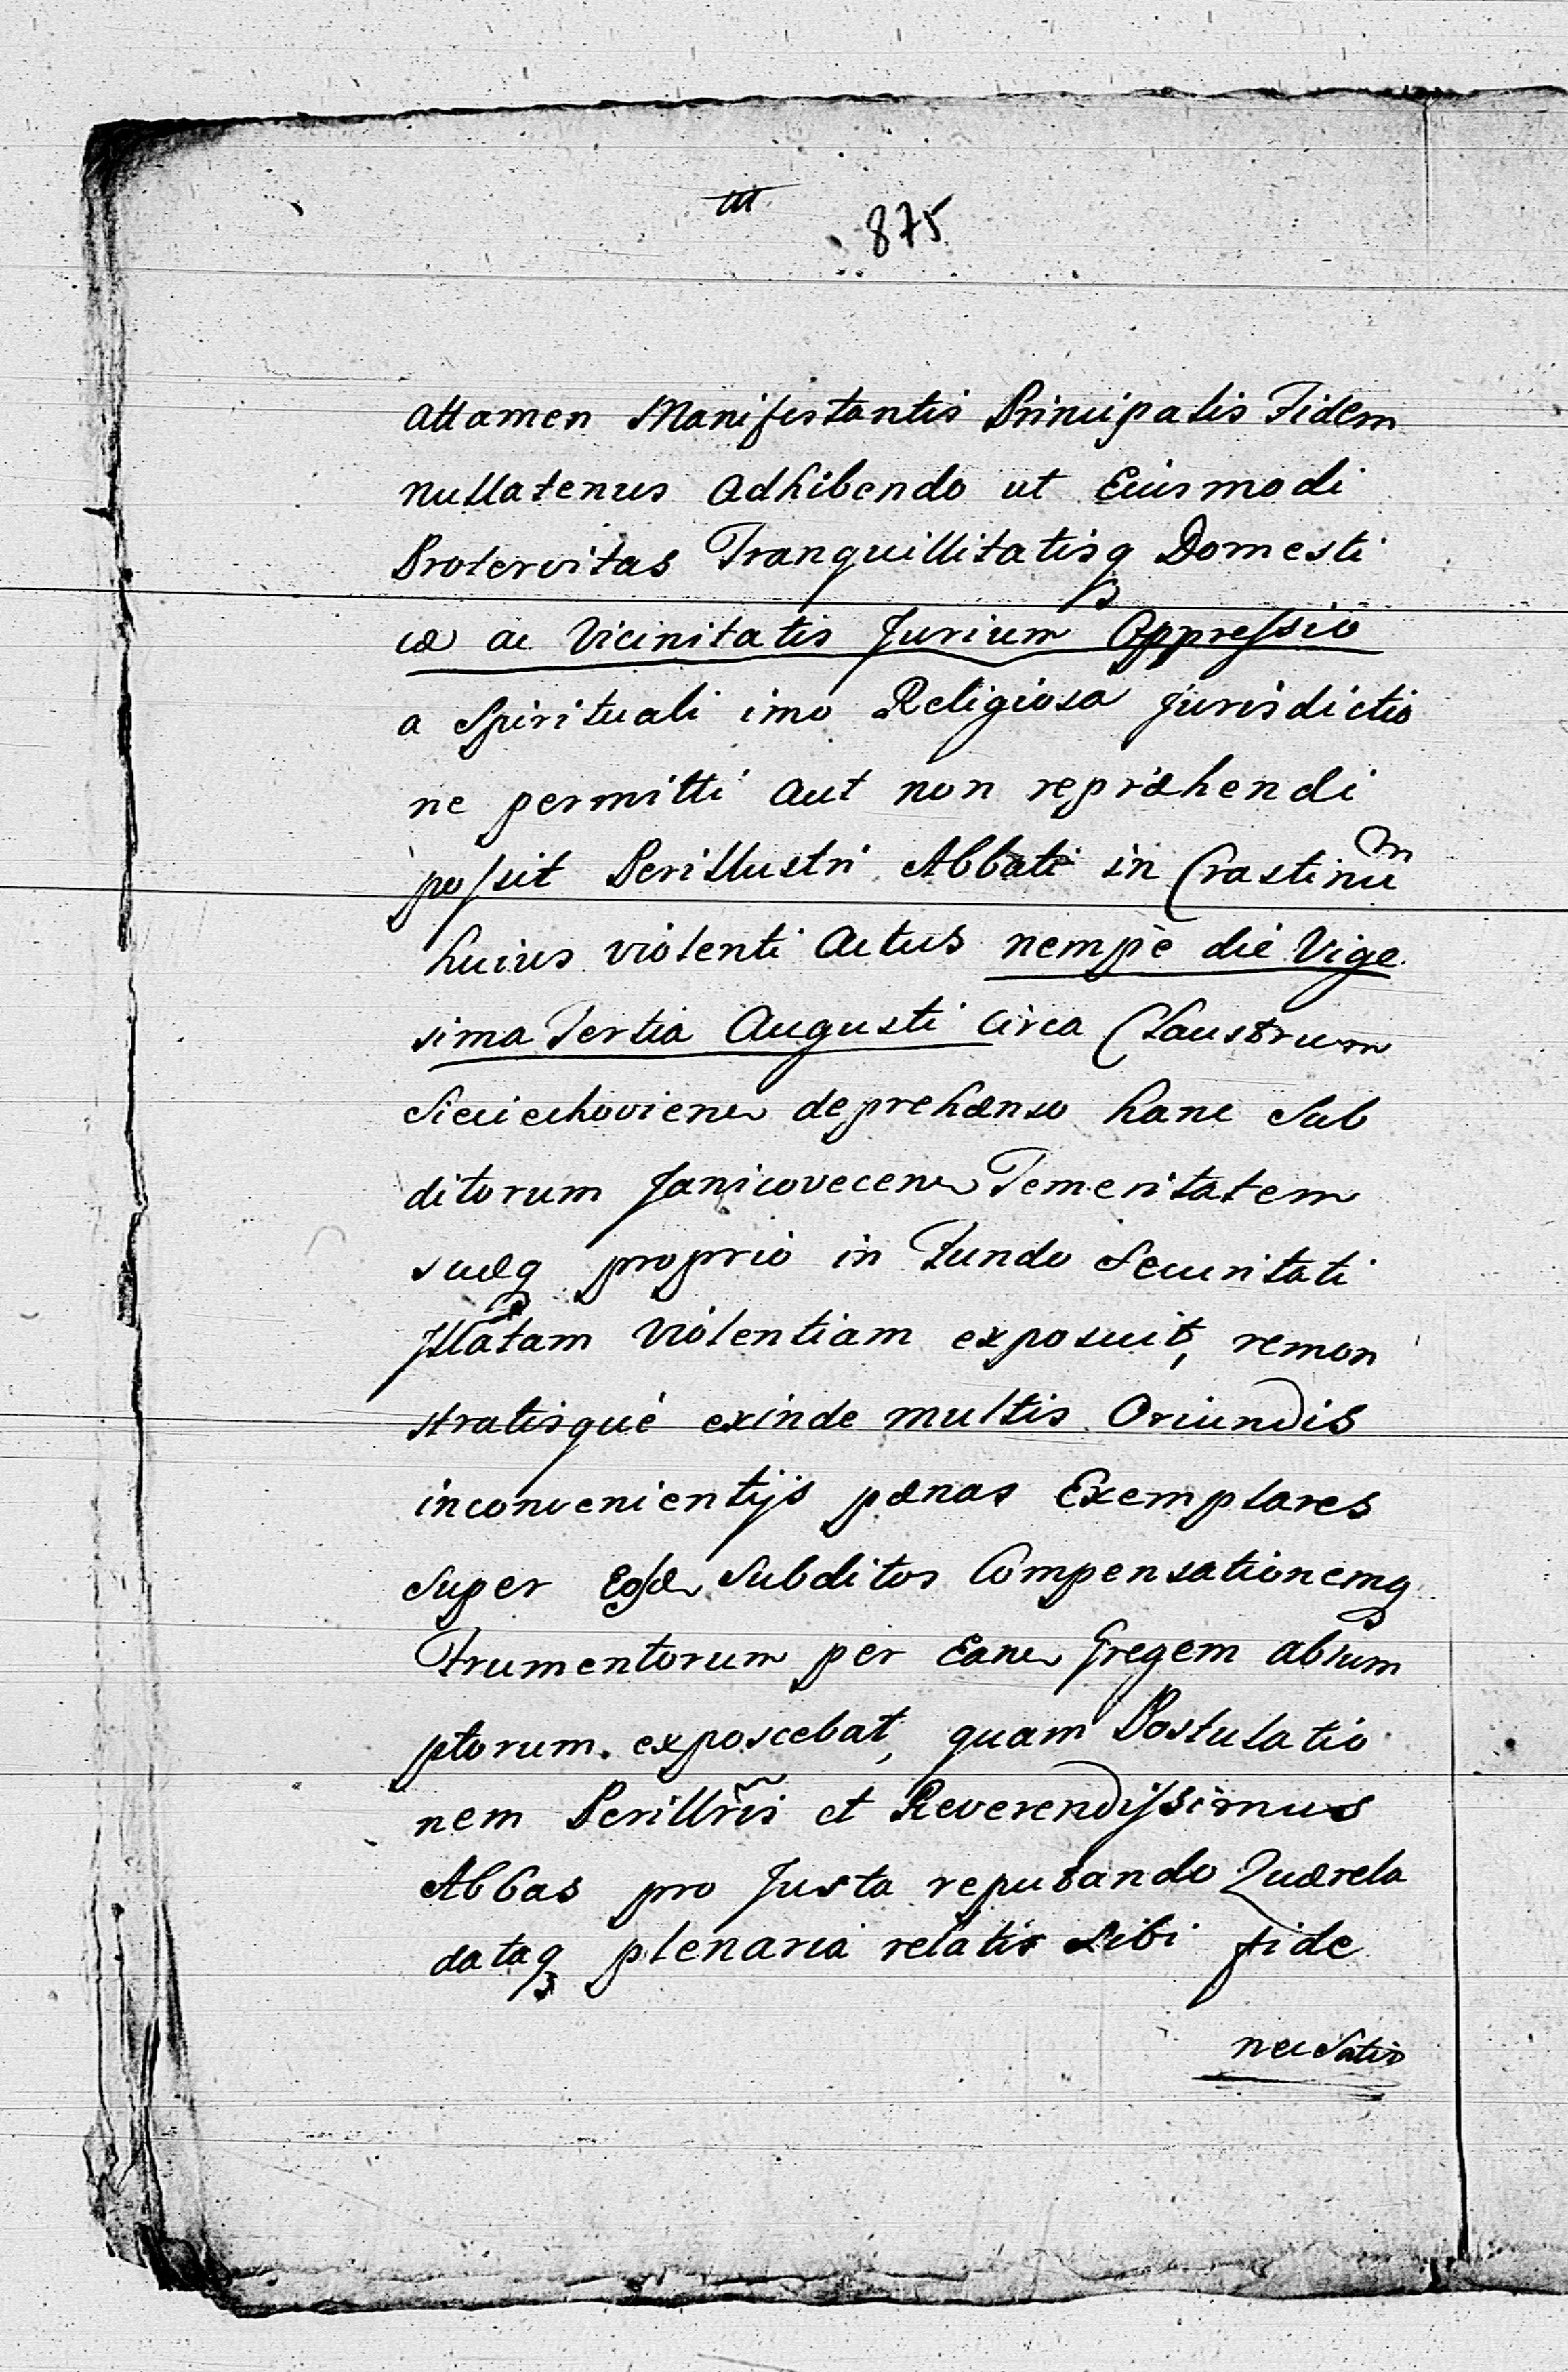 875
attamen Manifestantis Principalis Fidem
nullatenus adhibendo ut Eiusmodi
Protervitas Tranquillitatisq Domesti
cæ ac Vicinitatis Jurium Oppressio
a Spirituali imo Religiosa Jurisdictio
ne permitti aut non repræhendi
possit Perillustri Abbati in Crastinũ
huius violenti Actus nempè die Vige
sima Tertia Augusti circa Claustrum
Sieciechovien deprehænso hanc Sub
ditorum Janicovecen Temeritatem
suæq proprio in Fundo Securitati
Illatam violentiam exposuit, remon
stratisque exinde multis Oriundis
inconvenientijs pænas Exemplares
super Subditos Compensationemq
Frumentorum per Gregem absum
ptorum. exposcebat, quam Postulatio
nem Perillris̃ et Reverendissimus
Abbas pro Justa reputando Quærela
dataq plenaria relatis Sibi fide
nec Satis